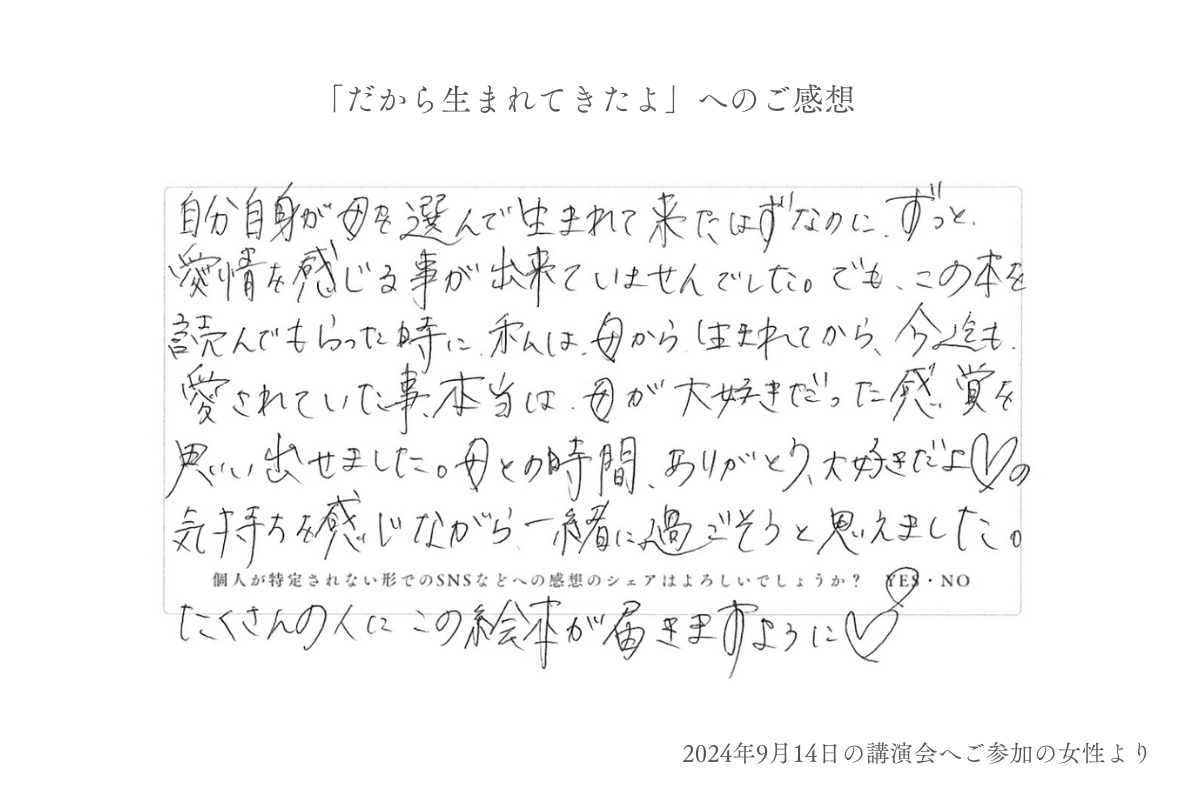 「だから生まれてきたよ」へのご感想
自分自身が母を選んで生まれて来たはずなのに、ずっと、
愛情を感じる事が出来ていませんでした。でも、この本を
読んでもらった時に、私は、母から生まれてから、今迄も、
愛されていた事、本当は、母が大好きだった感覚を
思いい出せました。母との時間、ありがとう、大好きだよ♡の
気持ちを感じながら、一緒に過ごそうと思えました。
個人が特定されない形でのSNSなどへの感想のシェアはよろしいでしょうか？ YES・NO
たくさんの人にこの絵本が届きますように♡
2024年9月14日の講演会へご参加の女性より